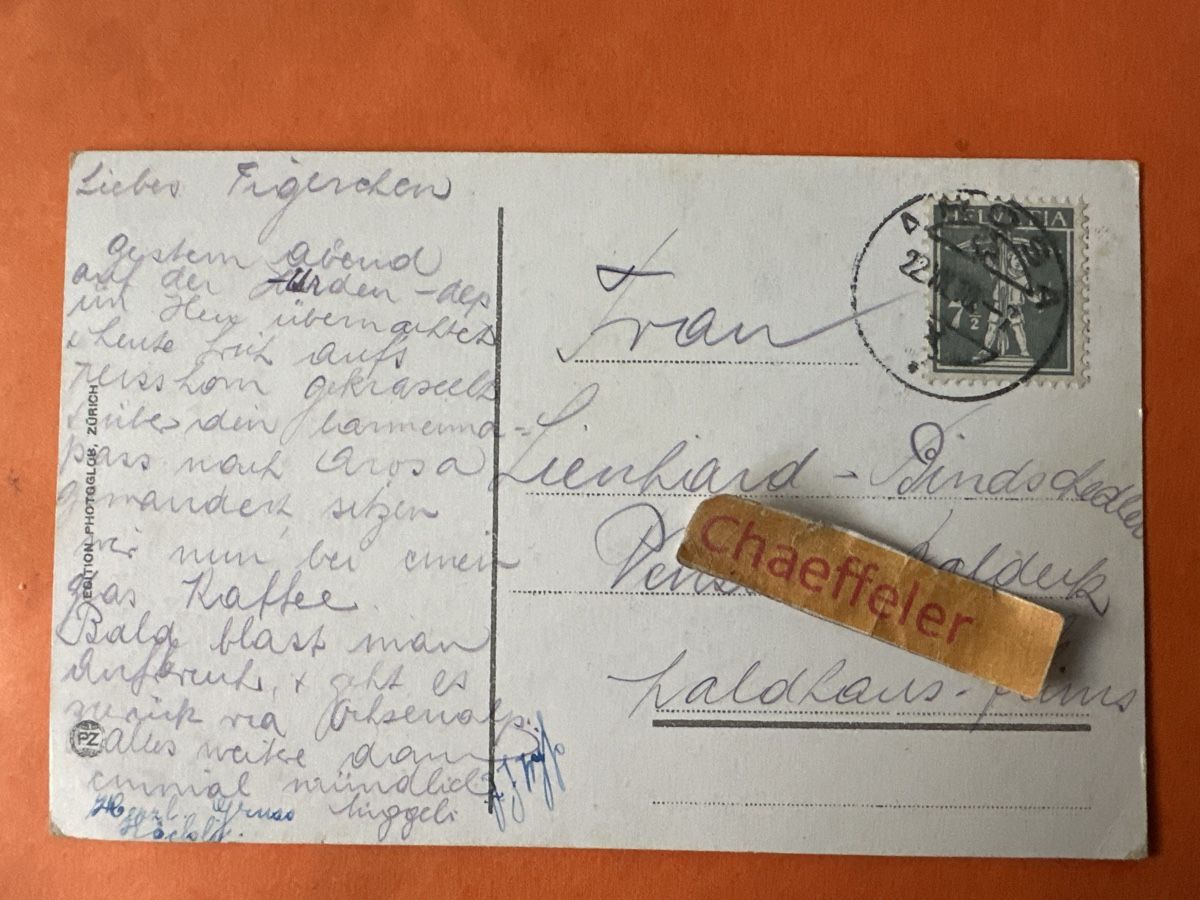 Liebes Figerchen
gestern abend
auf der Urden-alp
im Heu übernachtet
& heute früh aufs
horn gekraxelt
& über den
pass nach Arosa
gewandert, sitzen
wir nun bei einem
Glas Kaffee.
Bald bläst man
& geht es
zurück via Ochsenalp.
alles weitere dann
einmal mündlich
Herzl. Gruss
EDITION PHOTOGLOB, ZÜRICH
PZ
HELVETIA
7½
AROSA
Frau
Lienhard - Bindschedler
Chaeffeler
Waldeck
Waldhaus-Flims